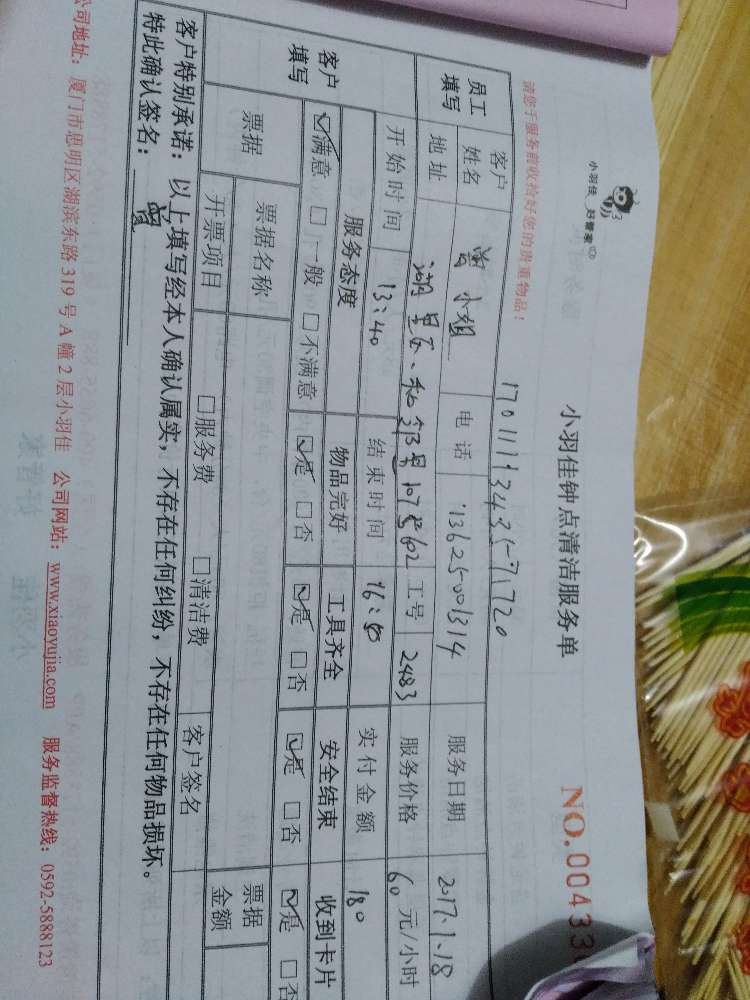 小羽佳 好管家
小羽佳钟点清洁服务单
NO.00433
请您于服务前收拾好您的贵重物品！
17011193435-71720
员工填写 客户姓名 曾小姐 电话 13625001314 服务日期 2017.1.18
地址 湖里区、 107 602 工号 2483 服务价格 60 元/小时
开始时间 13:40 结束时间 实付金额 180
客户填写 服务态度 物品完好 工具齐全 安全结束 收到卡片
☑满意 □一般 □不满意 ☑是 □否 ☑是 □否 ☑是 □否 ☑是 □否
票据 票据名称 票据金额
开票项目 □服务费 □清洁费 客户签名
客户特别承诺：以上填写经本人确认属实，不存在任何纠纷，不存在任何物品损坏。
特此确认签名：
公司地址：厦门市思明区湖滨东路319号A幢2层小羽佳 公司网站：www.xiaoyujia.com 服务监督热线：0592-5888123